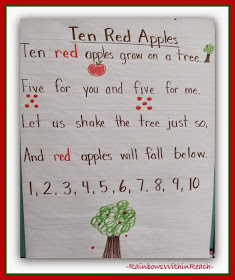 Ten Red Apples
Ten red apples grow on a tree
Five for you and five for me.
Let us shake the tree just so,
And red apples will fall below.
1, 2, 3, 4, 5, 6, 7, 8, 9, 10
-RainbowsWithinReach-